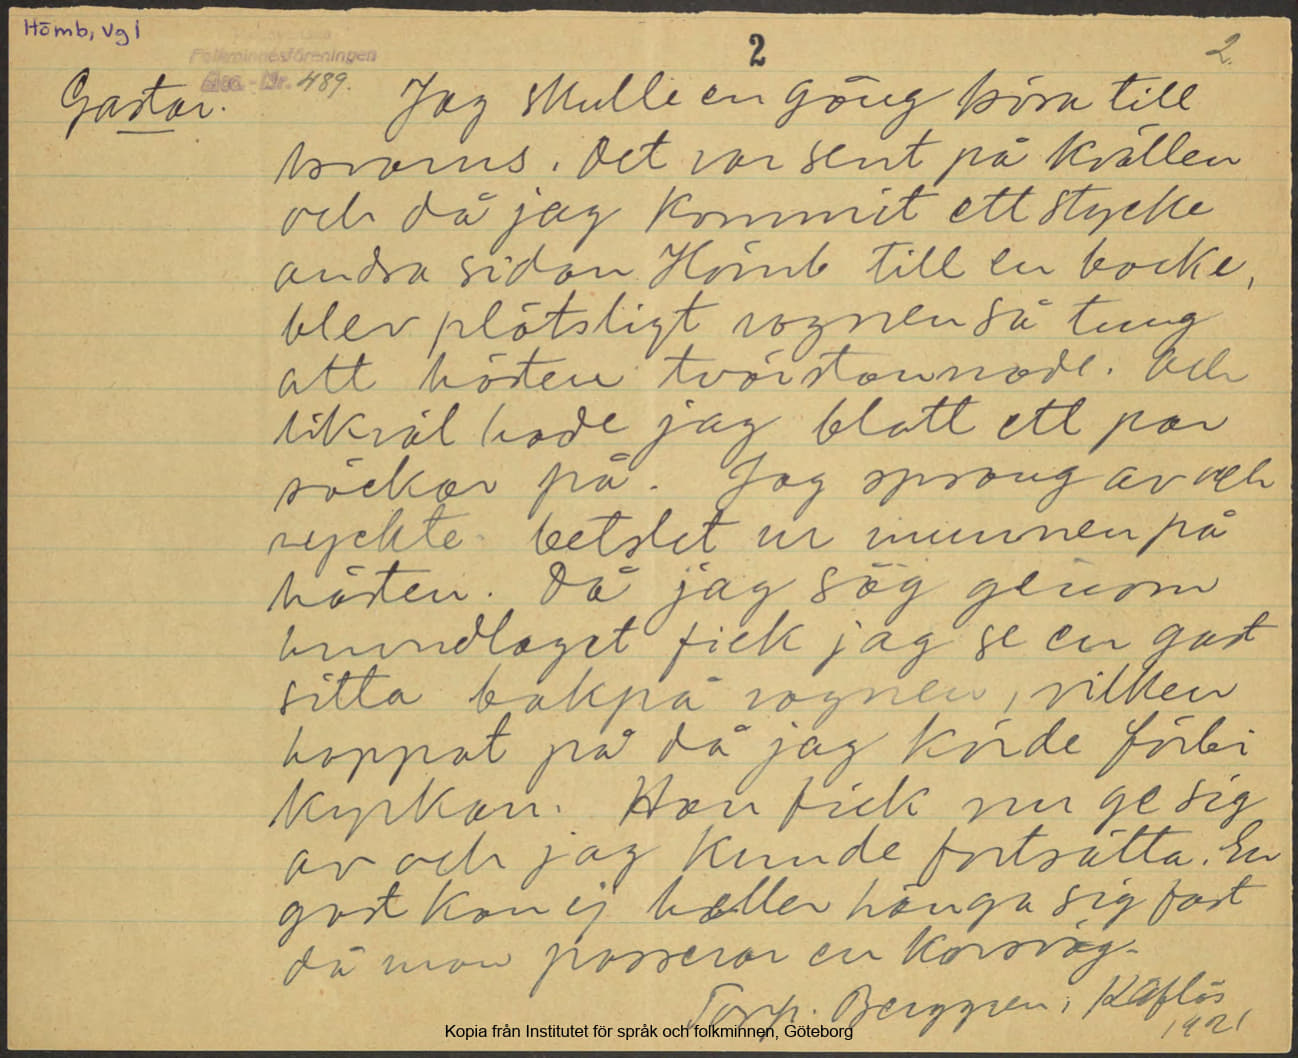 Hömb, Vgl
2
2.
Folkminnesföreningen
Acc. - Nr. 489.
Gastar. Jag skulle en gång köra till
kvarns. Det var sent på kvällen
och då jag kommit ett stycke
andra sidan Hömb till en backe,
blev plötsligt vagnen så tung
att hästen tvärstannade. Och
likväl hade jag blott ett par
säckar på. Jag sprang av och
ryckte betslet ur munnen på
hästen. Då jag såg genom
huvudlaget fick jag se en gast
sitta bakpå vagnen, vilken
hoppat på då jag körde förbi
kyrkan. Han fick nu ge sig
av och jag kunde fortsätta. En
gast kan ej heller hänga sig fast
då man passerar en korsväg.
Torp. Berggren, Käflås
1921
Kopia från Institutet för språk och folkminnen, Göteborg